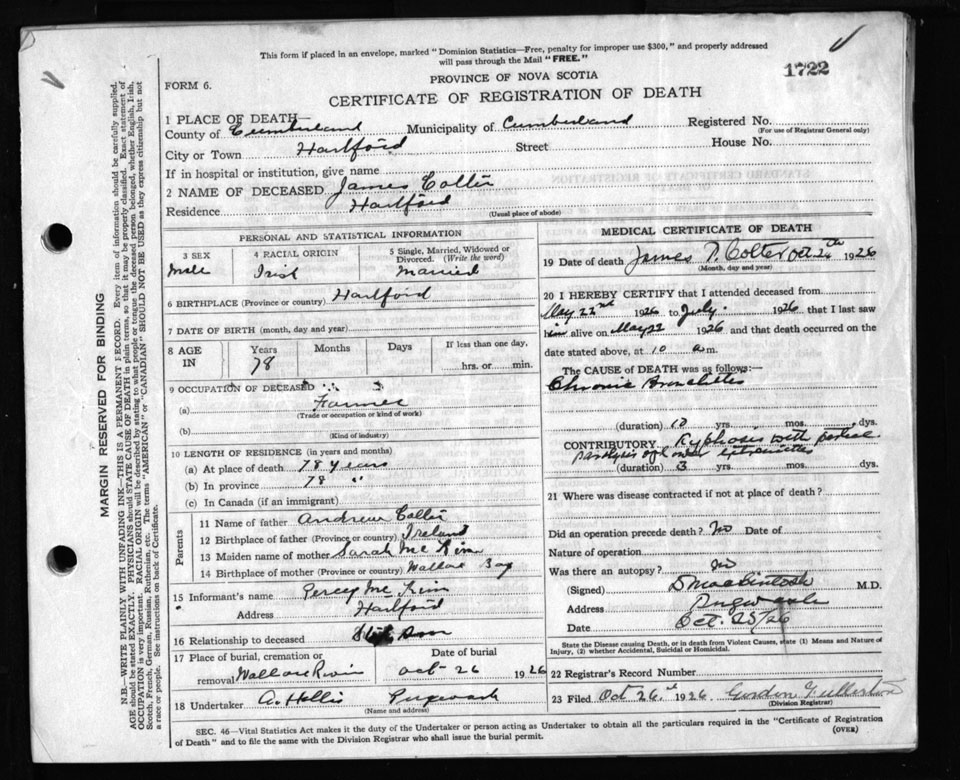 This form if placed in an envelope, marked "Dominion Statistics—Free, penalty for improper use $300," and properly addressed
will pass through the Mail "FREE."
1722
PROVINCE OF NOVA SCOTIA
FORM 6.
CERTIFICATE OF REGISTRATION OF DEATH
1 PLACE OF DEATH—
County of Cumberland Municipality of Cumberland Registered No.
(For use of Registrar General only)
City or Town Hartford Street House No.
If in hospital or institution, give name
2 NAME OF DECEASED James Colter
Residence Hartford
(Usual place of abode)
PERSONAL AND STATISTICAL INFORMATION
3 SEX
Male
4 RACIAL ORIGIN
Irish
5 Single, Married, Widowed or
Divorced. (Write the word)
Married
6 BIRTHPLACE (Province or country) Hartford
7 DATE OF BIRTH (month, day and year)
8 AGE IN
Years
78
Months
Days
If less than one day.
hrs. or min.
9 OCCUPATION OF DECEASED
(a) Farmer
(Trade or occupation or kind of work)
(b)
(Kind of industry)
10 LENGTH OF RESIDENCE (in years and months)
(a) At place of death 78 years
(b) In province 78 "
(c) In Canada (if an immigrant)
Parents
11 Name of father Andrew Colter
12 Birthplace of father (Province or country) Ireland
13 Maiden name of mother Sarah McKim
14 Birthplace of mother (Province or country) Wallace Bay
15 Informant's name Percy McKim
Address Hartford
16 Relationship to deceased Son
17 Place of burial, cremation or
removal Wallace River
Date of burial
Oct 26 1926
18 Undertaker A. Hollis Pugwash
(Name and address)
MEDICAL CERTIFICATE OF DEATH
19 Date of death James Colter Oct. 24th 1926
(Month, day and year)
20 I HEREBY CERTIFY that I attended deceased from
May 22nd 1926 to July 1926 that I last saw
him alive on May 22 1926 and that death occurred on the
date stated above, at 10 a.m.
The CAUSE of DEATH was as follows:—
Chronic Bronchitis
(duration) 10 yrs. mos. dys.
CONTRIBUTORY Kyphosis with partial
paralysis of lower extremities
(duration) 3 yrs. mos. dys.
21 Where was disease contracted if not at place of death?
Did an operation precede death? No Date of
Nature of operation
Was there an autopsy? no
(Signed) D MacKintosh M.D.
Address Pugwash
Date Oct. 25/26
State the disease causing Death, or in death from Violent Causes, state (1) Means and Nature of
Injury, (2) whether Accidental, Suicidal or Homicidal.
22 Registrar's Record Number
23 Filed Oct 26 1926. Gordon Fullerton
(Division Registrar)
SEC. 46—Vital Statistics Act makes it the duty of the Undertaker or person acting as Undertaker to obtain all the particulars required in the "Certificate of Registration
of Death" and to file the same with the Division Registrar who shall issue the burial permit.
(OVER)
MARGIN RESERVED FOR BINDING
N.B.—WRITE PLAINLY WITH UNFADING INK—THIS IS A PERMANENT RECORD. Every item of information should be carefully supplied.
AGE should be stated EXACTLY. PHYSICIANS should STATE CAUSE OF DEATH in plain terms, so that it may be properly classified. Exact statement of
OCCUPATION is very important. RACIAL ORIGIN will be described by stating to what people or tongue the deceased person belonged, whether English, Irish,
Scotch, French, German, Russian, Ruthenian, etc. The terms "AMERICAN" or "CANADIAN" SHOULD NOT BE USED as they express citizenship but not
a race or people. See instructions on back of Certificate.